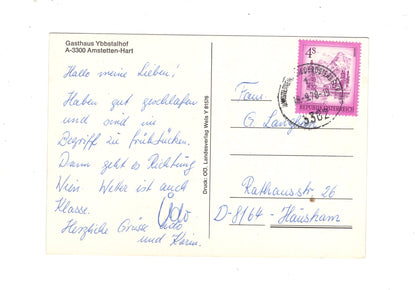 Gasthaus Ybbstalhof
A-3300 Amstetten-Hart
Hallo meine Lieben!
Haben gut geschlafen
und sind im
Begriff zu frühstücken.
Dann geht es Richtung
Wien. Wetter ist auch
Klasse.
Herzliche Grüsse Udo
und Karin.
Udo
Druck: OÖ. Landesverlag Wels Y 81576
4 S
REPUBLIK ÖSTERREICH
3362
Fam.
G. Lang
Rathausstr. 26
D-8164- Hausham